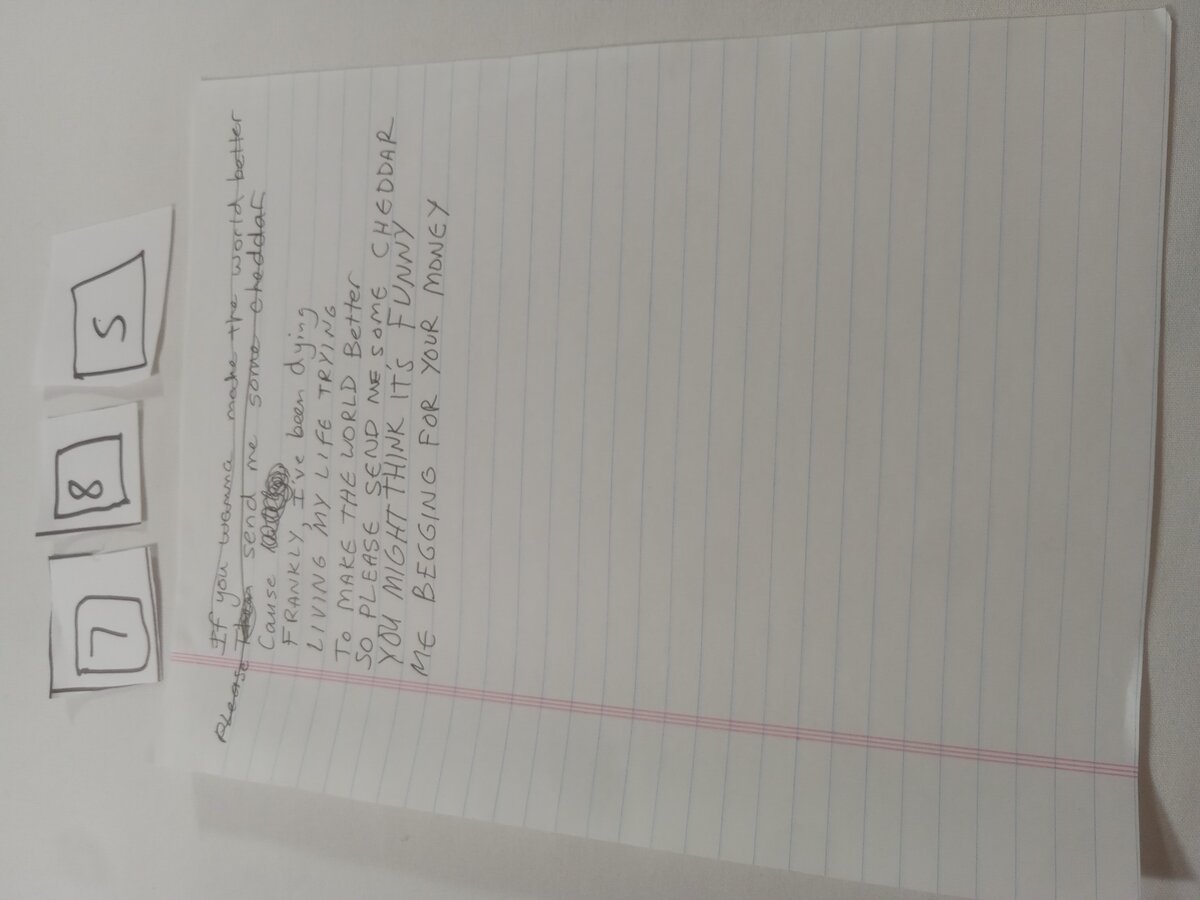 7 8 5
If you wanna make the world better
Please Then send me some cheddar
Cause
FRANKLY, I've been dying
LIVING MY LIFE TRYING
TO MAKE THE WORLD Better
SO PLEASE SEND ME SOME CHEDDAR
YOU MIGHT THINK IT'S FUNNY
ME BEGGING FOR YOUR MONEY